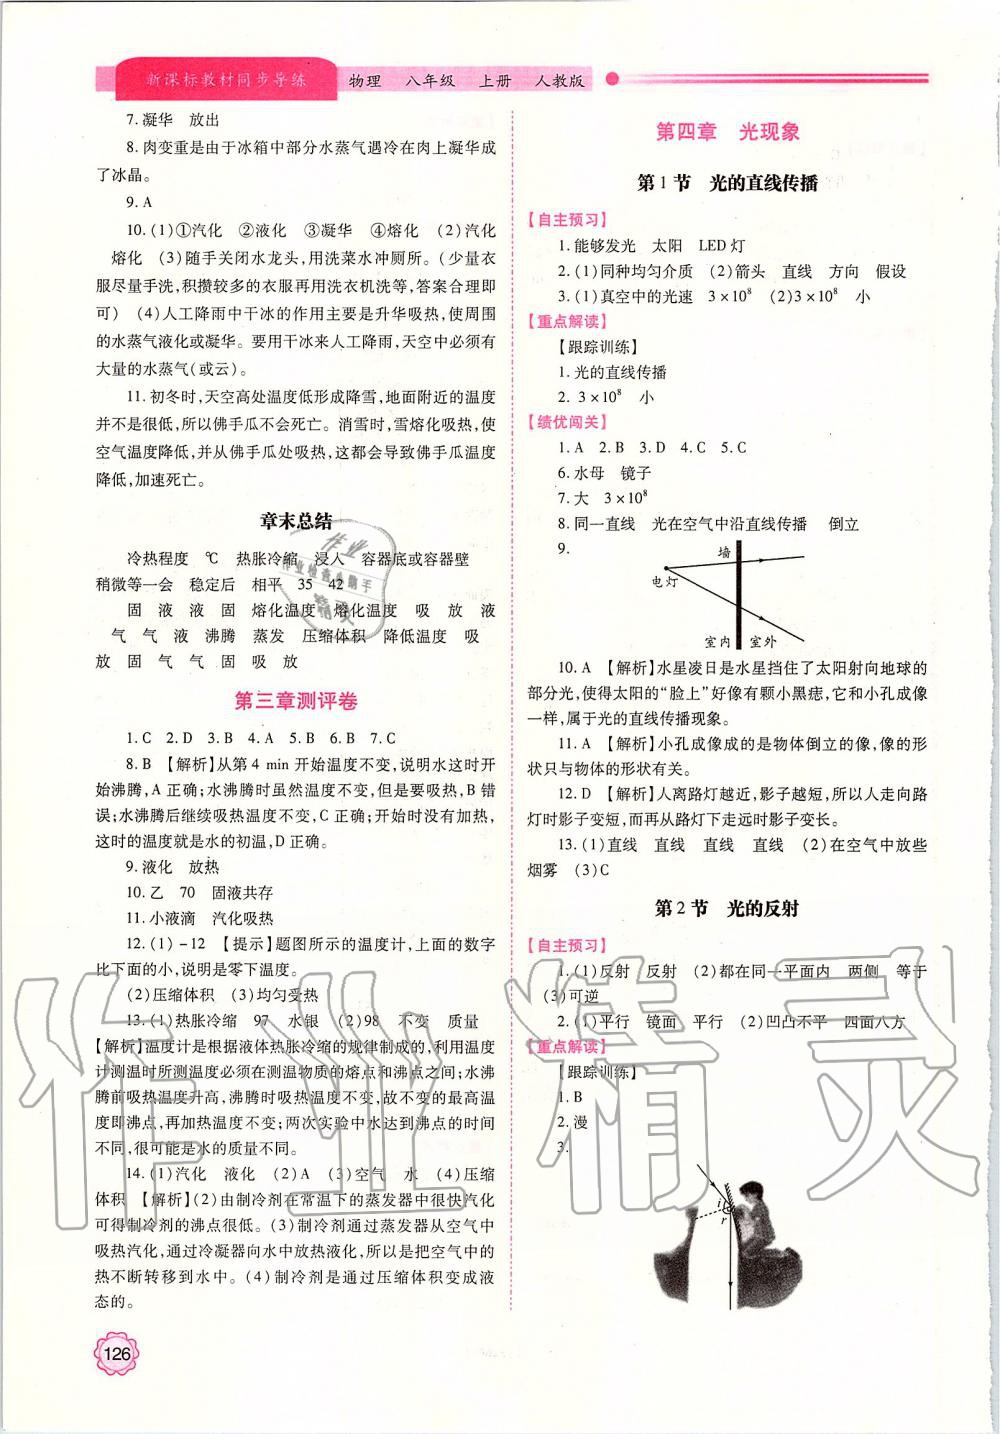 新课标教材同步导练 物理 八年级 上册 人教版
7.凝华 放出
8.肉变重是由于冰箱中部分水蒸气遇冷在肉上凝华成
了冰晶。
9.A
10.(1)①汽化 ②液化 ③凝华 ④熔化 (2)汽化
熔化 (3)随手关闭水龙头,用洗菜水冲厕所。(少量衣
服尽量手洗,积攒较多的衣服再用洗衣机洗等,答案合理即
可) (4)人工降雨中干冰的作用主要是升华吸热,使周围
的水蒸气液化或凝华。要用干冰来人工降雨,天空中必须有
大量的水蒸气(或云)。
11.初冬时,天空高处温度低形成降雪,地面附近的温度
并不是很低,所以佛手瓜不会死亡。消雪时,雪熔化吸热,使
空气温度降低,并从佛手瓜处吸热,这都会导致佛手瓜温度
降低,加速死亡。
章末总结
冷热程度 ℃ 热胀冷缩 浸入 容器底或容器壁
稍微等一会 稳定后 相平 35 42
固 液 液 固 熔化温度 熔化温度 吸 放 液
气 气 液 沸腾 蒸发 压缩体积 降低温度 吸
放 固 气 气 固 吸 放
第三章测评卷
1.C 2.D 3.B 4.A 5.B 6.B 7.C
8.B 【解析】从第4 min开始温度不变,说明水这时开
始沸腾,A正确;水沸腾时虽然温度不变,但是要吸热,B错
误;水沸腾后继续吸热温度不变,C正确;开始时没有加热,
这时的温度就是水的初温,D正确。
9.液化 放热
10.乙 70 固液共存
11.小液滴 汽化吸热
12.(1)-12 【提示】题图所示的温度计,上面的数字
比下面的小,说明是零下温度。
(2)压缩体积 (3)均匀受热
13.(1)热胀冷缩 97 水银 (2)98 不变 质量
【解析】温度计是根据液体热胀冷缩的规律制成的,利用温度
计测温时所测温度必须在测温物质的熔点和沸点之间;水沸
腾前吸热温度升高,沸腾时吸热温度不变,故不变的最高温
度即沸点,再沸腾温度不变;两次实验中水达到沸点的时间
不同,很可能是水的质量不同。
14.(1)汽化 液化 (2)A (3)空气 水 (4)压缩
体积 【解析】(2)由制冷剂在常温下的蒸发器中很快汽化
可得制冷剂的沸点很低。(3)制冷剂通过蒸发器从空气中
吸热汽化,通过冷凝器向水中放热液化,所以是把空气中的
热不断转移到水中。(4)制冷剂是通过压缩体积变成液
态的。
126
第四章 光现象
第1节 光的直线传播
【自主预习】
1.能够发光 太阳 LED灯
2.(1)同种均匀介质 (2)箭头 直线 方向 假设
3.(1)真空中的光速 3×10⁸ (2)3×10⁸ 小
【重点解读】
【跟踪训练】
1.光的直线传播
2. 3×10⁸ 小
【绩优闯关】
1.A 2.B 3.D 4.C 5.C
6.水母 镜子
7.大 3×10⁸
8.同一直线 光在空气中沿直线传播 倒立
9.
墙
电灯
室内 室外
10.A 【解析】水星凌日是水星挡住了太阳射向地球的
部分光,使得太阳的“脸上”好像有颗小黑痣,它和小孔成像
一样,属于光的直线传播现象。
11.A 【解析】小孔成像成的是物体倒立的像,像的形
状只与物体的形状有关。
12.D 【解析】人离路灯越近,影子越短,所以人走向路
灯时影子变短,而再从路灯下走远时影子变长。
13.(1)直线 直线 直线 直线 (2)在空气中放些
烟雾 (3)C
第2节 光的反射
【自主预习】
1.(1)反射 反射 (2)都在同一平面内 两侧 等于
(3)可逆
2.(1)平行 镜面 平行 (2)凹凸不平 四面八方
【重点解读】
【跟踪训练】
1.B
2.漫
3.
i
r
作业精灵